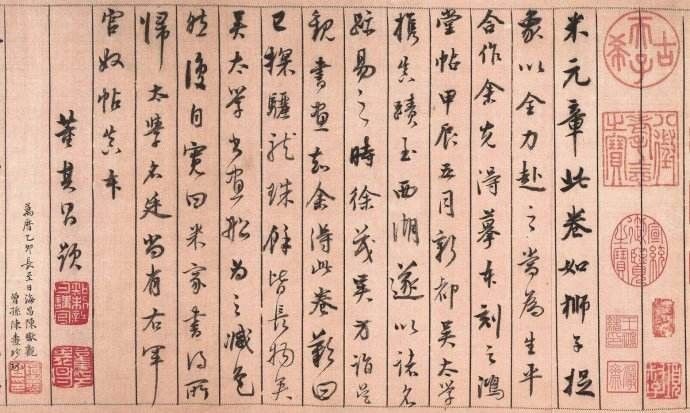 古希天子
八徵耄念之寶
宣統御覽之寶
米元章此卷如獅子捉
象以全力赴之當為生平
合作余先得摹本刻之鴻
堂帖甲辰五月新都吳太學
携真蹟至西湖遂以諸名
跡易之時徐茂吳方詣吳
觀書畫知余得此卷歎曰
已探驪龍珠餘皆長物矣
吳太学書畫船為之減色
然復自寬曰米家書得所
歸太學名廷尚有右軍
官奴帖真本
董其昌題
知制誥日講官
萬曆乙卯長至日海昌陳瓛觀
曾孫陳